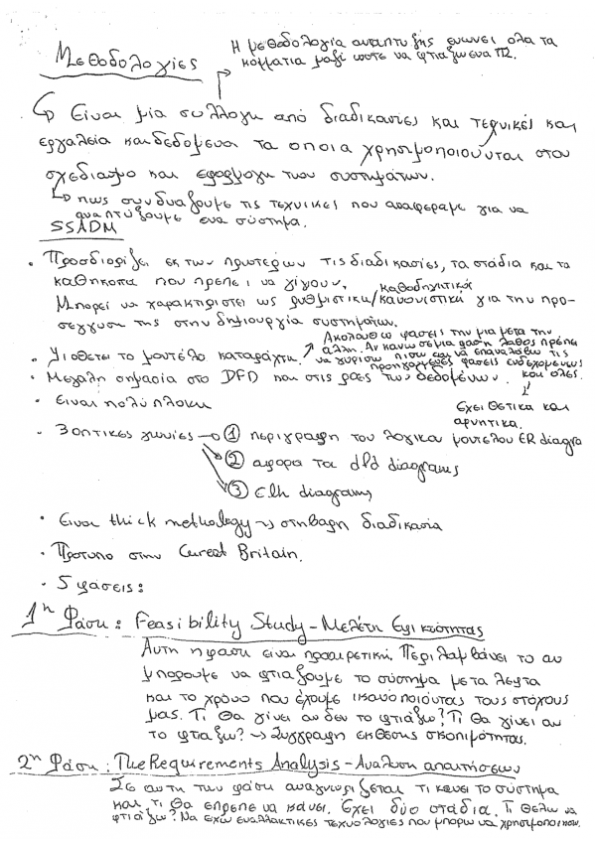 Η μεθοδολογία αναπτυξης ενωνει ολα τα
κομματια μαζί ωστε να φτιαξω ενα ΠΣ.
Μεθοδολογίες
Είναι μία συλλογη από διαδικασίες και τεχνικές και
εργαλεία και δεδομενα τα οποια χρησιμοποιούνται στον
σχεδιασμο και εφαρμογη των συστημάτων.
πως συνδυαζουμε τις τεχνικες που αναφεραμε για να
αναπτύξουμε ενα σύστημα.
SSADM
• Προσδιορίζει εκ των προτερων τις διαδικασίες, τα στάδια και τα
καθηκοντα που πρεπει να γίνουν.
καθοδηγητικοι
Μπορεί να χαρακτηριστει ως ρυθμιστικη/κανονιστικη για την προ-
σεγγιση της στην δημιουργία συστημάτων.
Ακολουθω φασεις την μια μετα την
αλλη. Αν κανω σε μια φαση λαθος πρεπει
• Υιοθετει το μοντέλο καταρραχτη. να γυρισω πισω και να επαναλαβω τις
προηγουμενες φασεις ενδεχομενως
• Μεγαλη σημασία στο DFD και στις ροες των δεδομένων. και ολες.
• Ειναι πολύπλοκη
Εχει θετικα και
αρνητικα.
• 3 οπτικες γωνίες → ① περιγραφη του λογικου μοντελου ER diagra
② αφορα τα dfd diagrams
③ elh diagrams
• Ειναι thick methology → στιβαρη διαδικασια
• Προτυπο στην Great Britain.
• 5 φάσεις:
1η Φάση: Feasibility Study - Μελέτη Εφικτότητας
Αυτη η φαση ειναι προαιρετικη. Περιλαμβάνει το αν
μπορουμε να φτιαξουμε το σύστημα με τα λεφτα
και το χρόνο που έχουμε ικανοποιόντας τους στόχους
μας. Τι θα γίνει αν δεν το φτιαξω? Τι θα γίνει αν
το φτιαξω? → Συγγραφη εκθεσης σκοπιμότητας.
2η Φάση: The Requirements Analysis - Αναλυση απαιτήσεων
Σε αυτη την φάση αναγνωριζεται τι κανει το σύστημα
και τι θα επρεπε να κανει. Έχει δύο στάδια. Τι θελω να
φτιαξω? Να εχω εναλλακτικες τεχνολογιες που μπορω να χρησιμοποιησω.